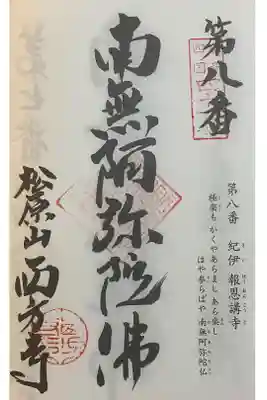 第八番
南無阿弥陀佛
松原山 西方寺
第八番 紀伊 報恩講寺
極楽も かくやあらまし あら楽し
はや参らばや 南無阿弥陀仏